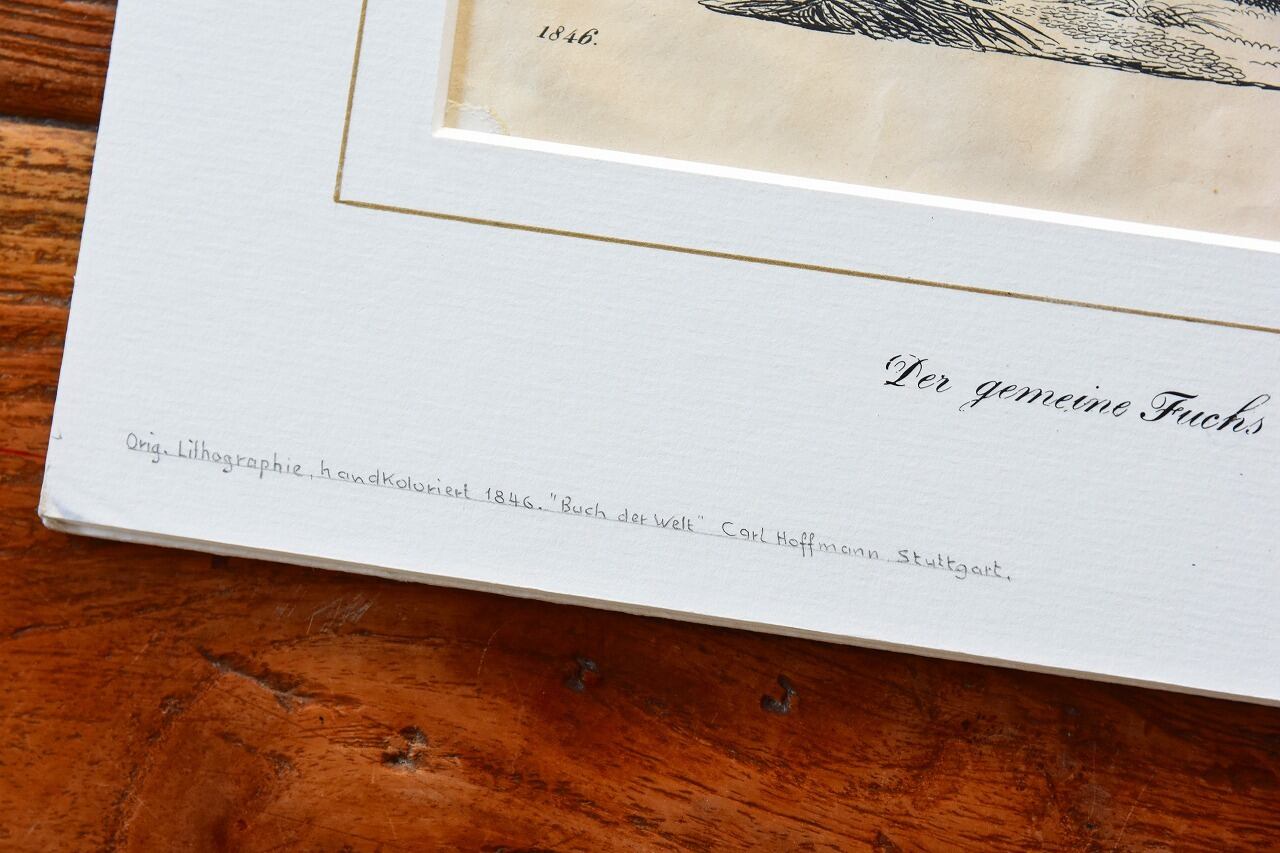 1846.
Der gemeine Fuchs
Orig. Lithographie, handkoloriert 1846. "Buch der Welt" Carl Hoffmann Stuttgart.